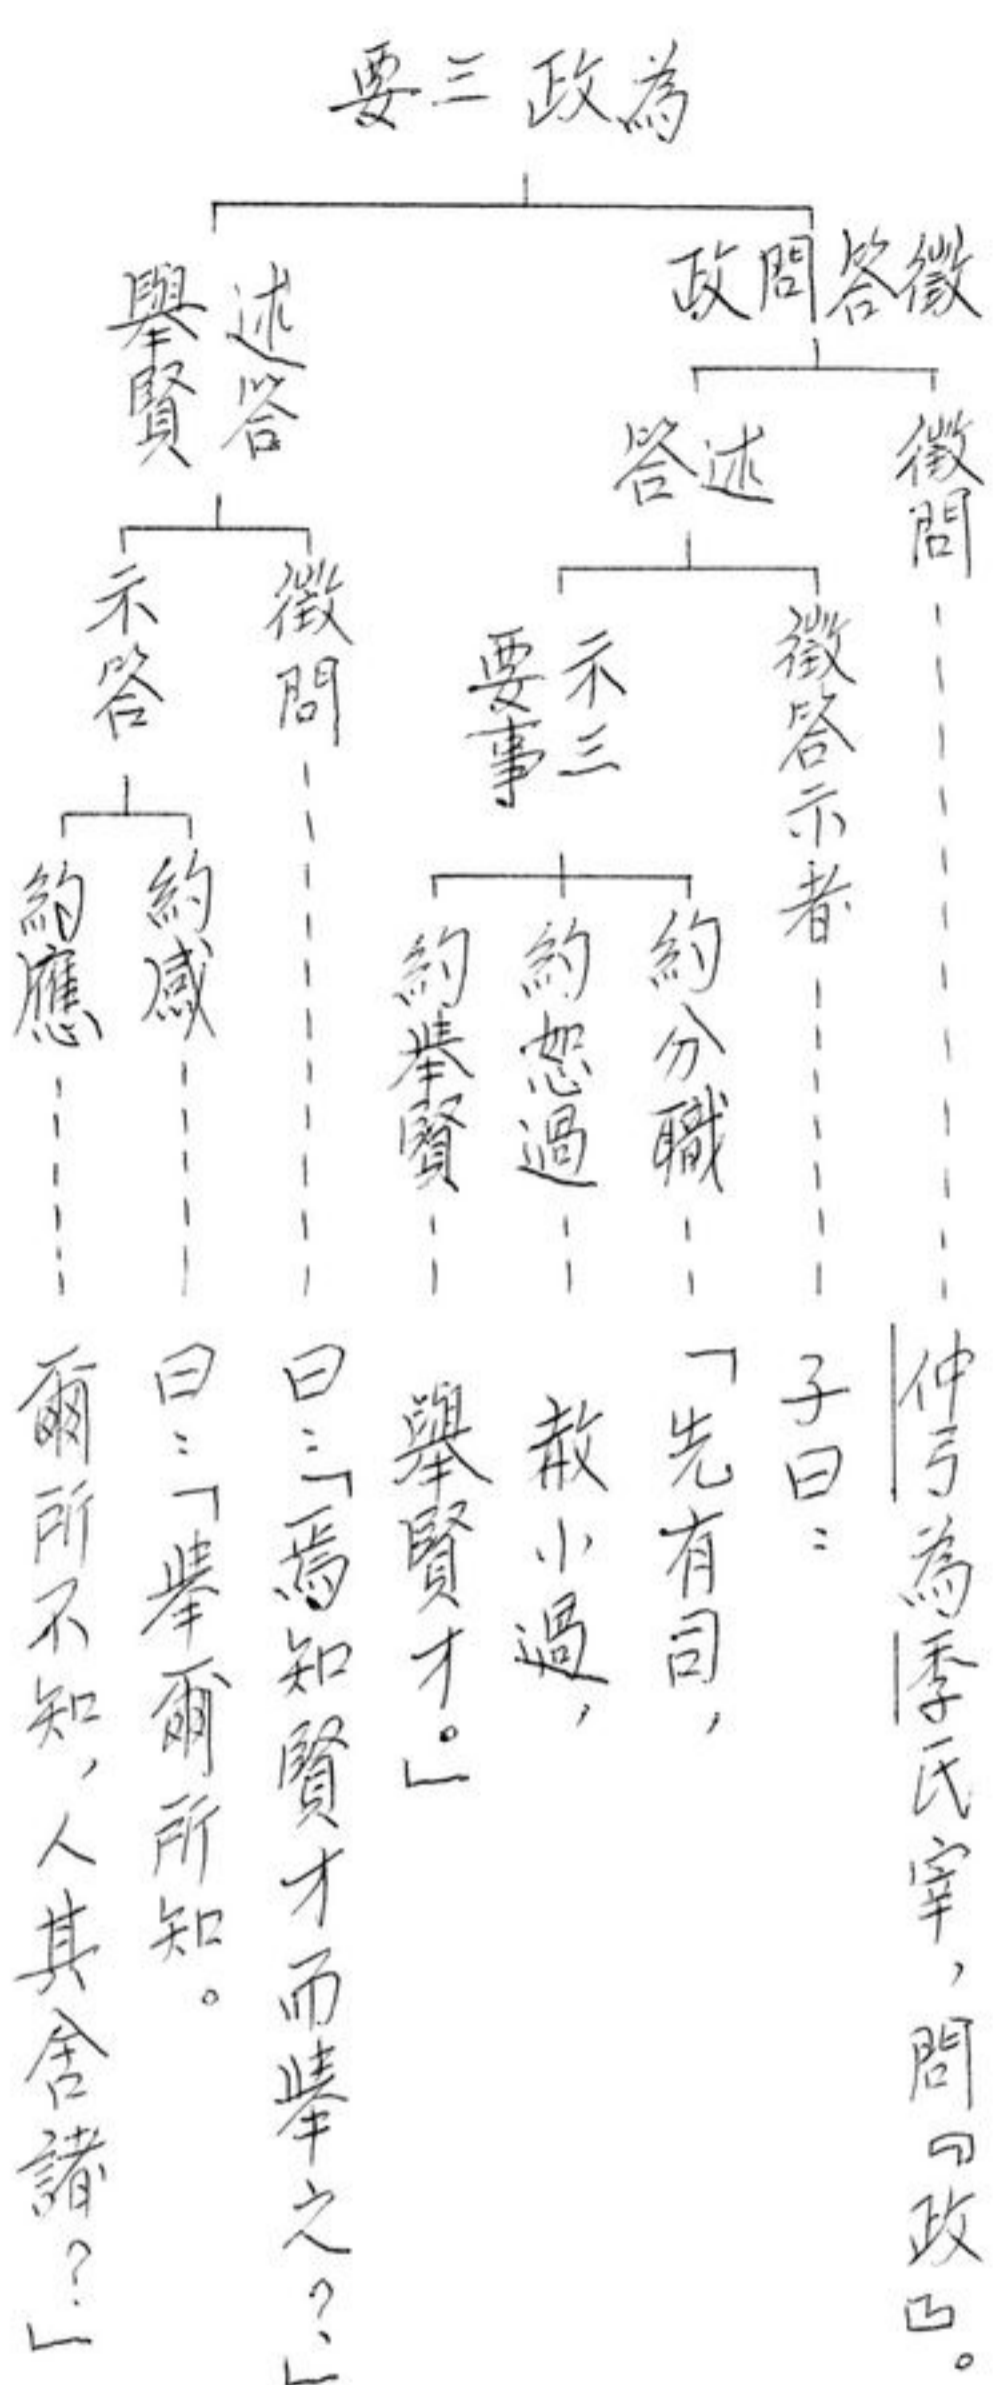 為政三要
徵答問政
徵問
仲弓為季氏宰，問『政』。
述答
徵答示者
子曰：
示三
要事
約分職
「先有司，
約恕過
赦小過，
約舉賢
舉賢才。」
述答
舉賢
徵問
曰：「焉知賢才而舉之？」
示答
約感
曰：「舉爾所知。
約應
爾所不知，人其舍諸？」